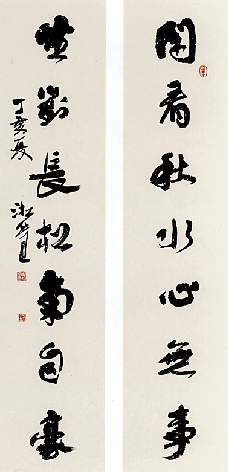 閒看秋水心無事
坐對長松氣自豪
丁亥夏